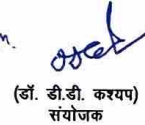 (डॉ. डी.डी. कश्यप)
संयोजक